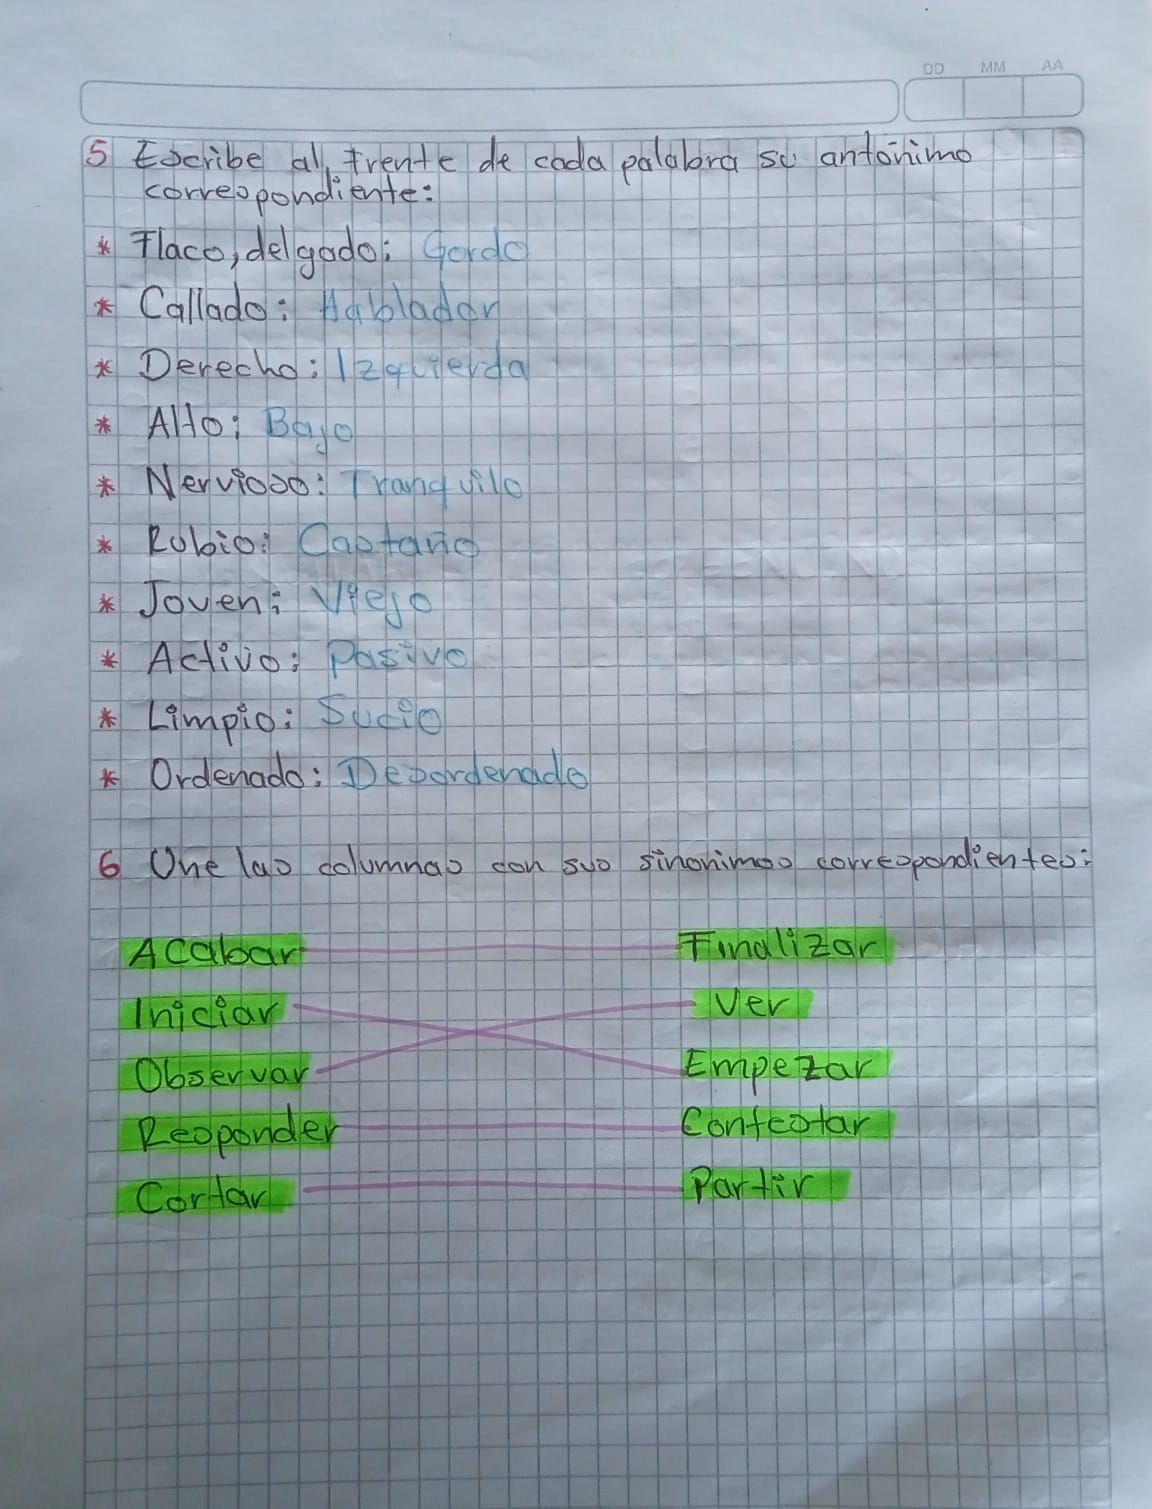 DD MM AA
5 Escribe al frente de cada palabra su antónimo
correspondiente:
* Flaco, delgado: Gordo
* Callado: Hablador
* Derecho: Izquierda
* Alto: Bajo
* Nervioso: Tranquilo
* Rubio: Castaño
* Joven: Viejo
* Activo: Pasivo
* Limpio: Sucio
* Ordenado: Desordenado
6 Une las columnas con sus sinonimos correspondientes:
Acabar Finalizar
Iniciar Ver
Observar Empezar
Responder Contestar
Cortar Partir